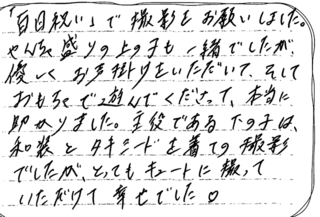 「百日祝い」で撮影をお願いしました。
やんちゃ盛りの上の子も一緒でしたが、
優しくお声掛けをいただいて、そして
おもちゃで遊んでくださって、本当に
助かりました。主役である下の子は、
和装とタキシードを着ての撮影
でしたが、とってもキュートに撮って
いただけて幸せでした♡